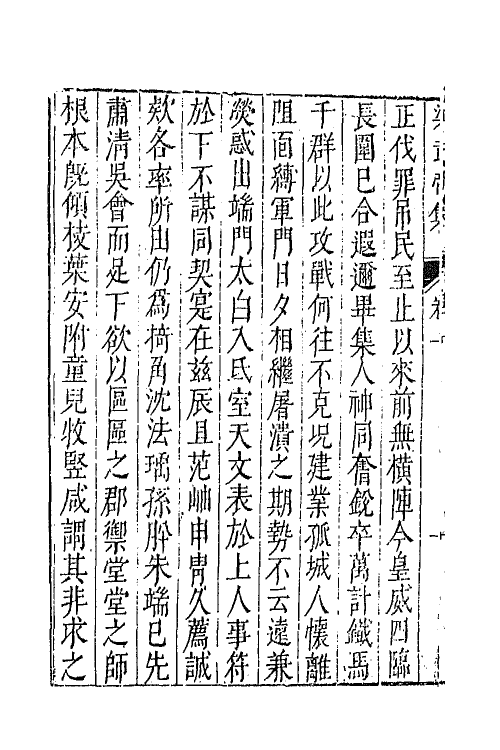 梁武帝集
卷一
正伐罪吊民至止以來前無橫陣今皇威四臨
長圍已合遐邇畢集人神同奮銳卒萬計鐵馬
千群以此攻戰何往不克况建業孤城人懷離
阻面縛軍門日夕相繼屠潰之期勢不云遠兼
熒惑出端門太白入氐室天文表於上人事符
於下不謀同契寔在兹辰且范岫申胄久薦誠
欵各率所由仍為掎角沈法瑀孫肸朱端已先
肅清吳會而足下欲以區區之郡禦堂堂之師
根本旣傾枝葉安附童兒牧竪咸謂其非求之